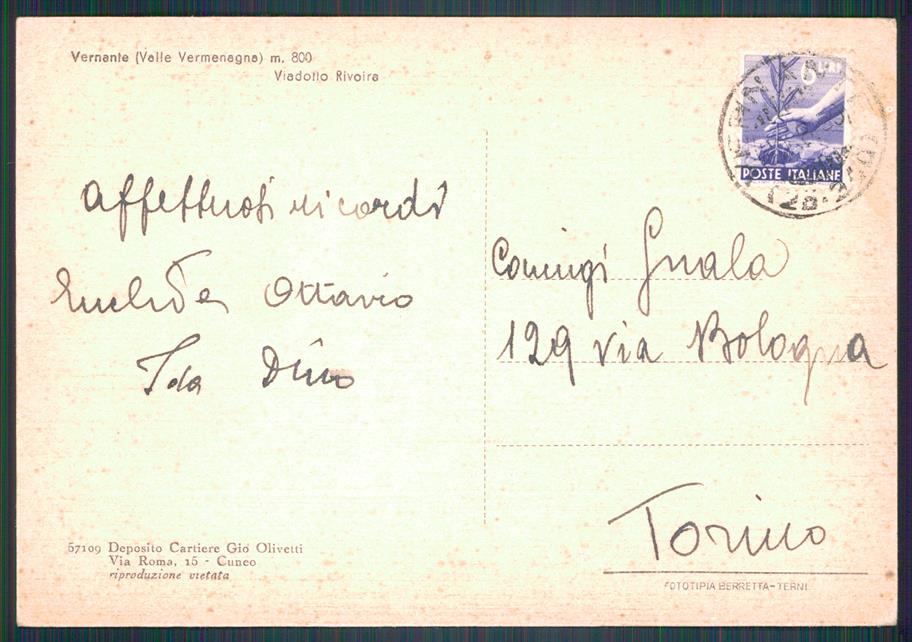 Vernante (Valle Vermenagna) m. 800
Viadotto Rivoira
6 LIRE
POSTE ITALIANE
affettuosi ricordi
Euclide Ottavio
Ida Dino
Coniugi Gnala
129 via Bologna
Torino
57109 Deposito Cartiere Gio Olivetti
Via Roma, 15 - Cuneo
riproduzione vietata
FOTOTIPIA BERRETTA-TERNI